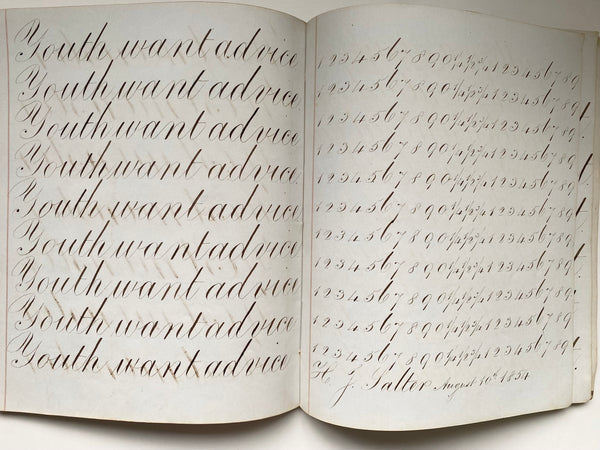 Youth want advice
Youth want advice
Youth want advice
Youth want advice
Youth want advice
Youth want advice
Youth want advice
Youth want advice
Youth want advice
1 2 3 4 5 6 7 8 9 0 ¼ ½ ¾ 1 2 3 4 5 6 7 8 9
1 2 3 4 5 6 7 8 9 0 ¼ ½ ¾ 1 2 3 4 5 6 7 8 9
1 2 3 4 5 6 7 8 9 0 ¼ ½ ¾ 1 2 3 4 5 6 7 8 9
1 2 3 4 5 6 7 8 9 0 ¼ ½ ¾ 1 2 3 4 5 6 7 8 9
1 2 3 4 5 6 7 8 9 0 ¼ ½ ¾ 1 2 3 4 5 6 7 8 9
1 2 3 4 5 6 7 8 9 0 ¼ ½ ¾ 1 2 3 4 5 6 7 8 9
1 2 3 4 5 6 7 8 9 0 ¼ ½ ¾ 1 2 3 4 5 6 7 8 9
1 2 3 4 5 6 7 8 9 0 ¼ ½ ¾ 1 2 3 4 5 6 7 8 9
1 2 3 4 5 6 7 8 9 0 ¼ ½ ¾ 1 2 3 4 5 6 7 8 9
1 2 3 4 5 6 7 8 9 0 ¼ ½ ¾ 1 2 3 4 5 6 7 8 9
1 2 3 4 5 6 7 8 9 0 ¼ ½ ¾ 1 2 3 4 5 6 7 8 9
H. J. Salter August 10th 1854